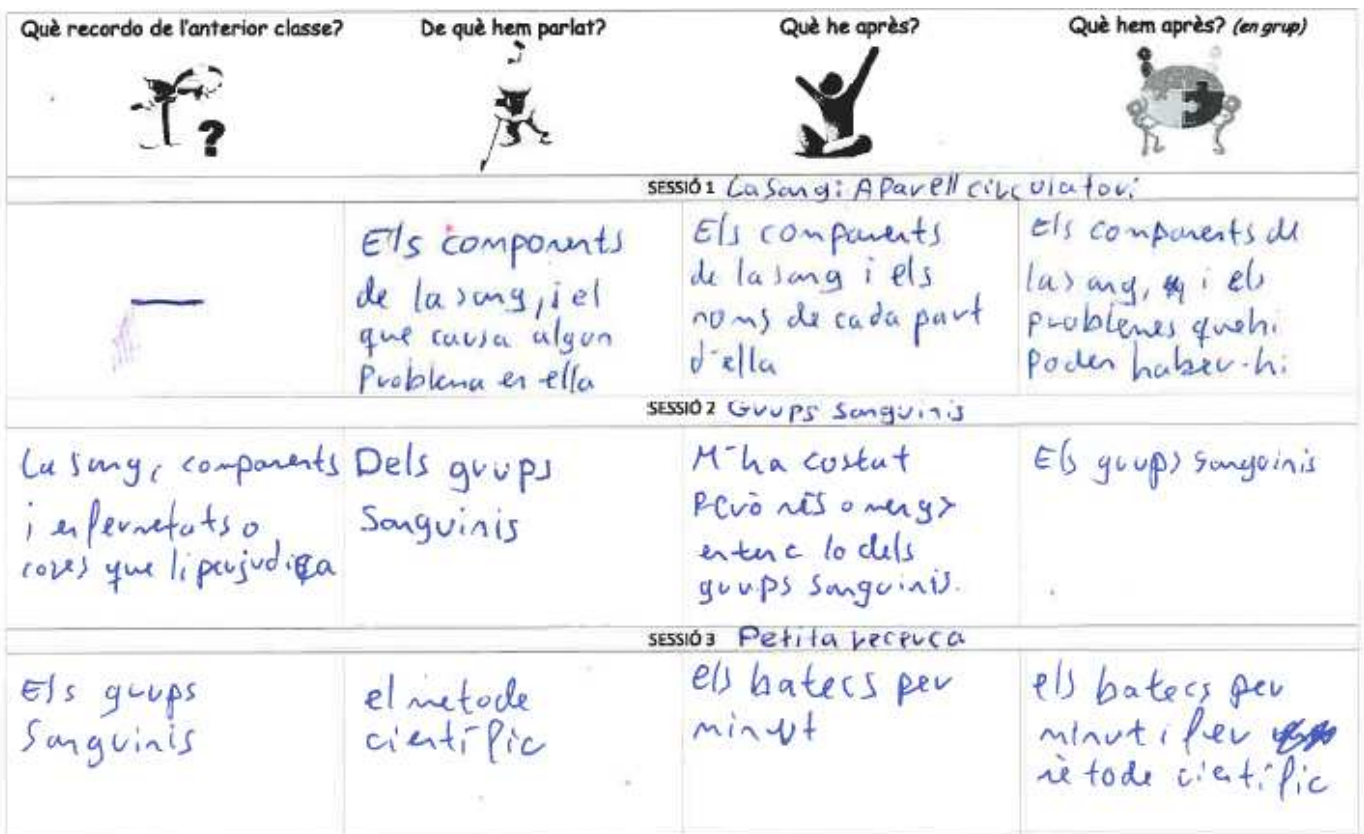 Què recordo de l'anterior classe?
De què hem parlat?
Què he après?
Què hem après? (en grup)
SESSIÓ 1 La Sang i Aparell circulatori
Els components
de la sang, i el
que causa algun
Problema en ella
Els components
de la sang i els
noms de cada part
d'ella
Els components de
la sang, i els
problemes que hi
Poden haber-hi
SESSIÓ 2 Grups Sanguinis
La sang, components
i enfermetats o
coses que li perjudica
Dels grups
Sanguinis
M'ha costat
Però més o menys
entenc lo dels
grups sanguinis.
Els grups sanguinis
SESSIÓ 3 Petita recerca
Els grups
Sanguinis
el metode
científic
els batecs per
minut
els batecs per
minut i fer
mètode científic